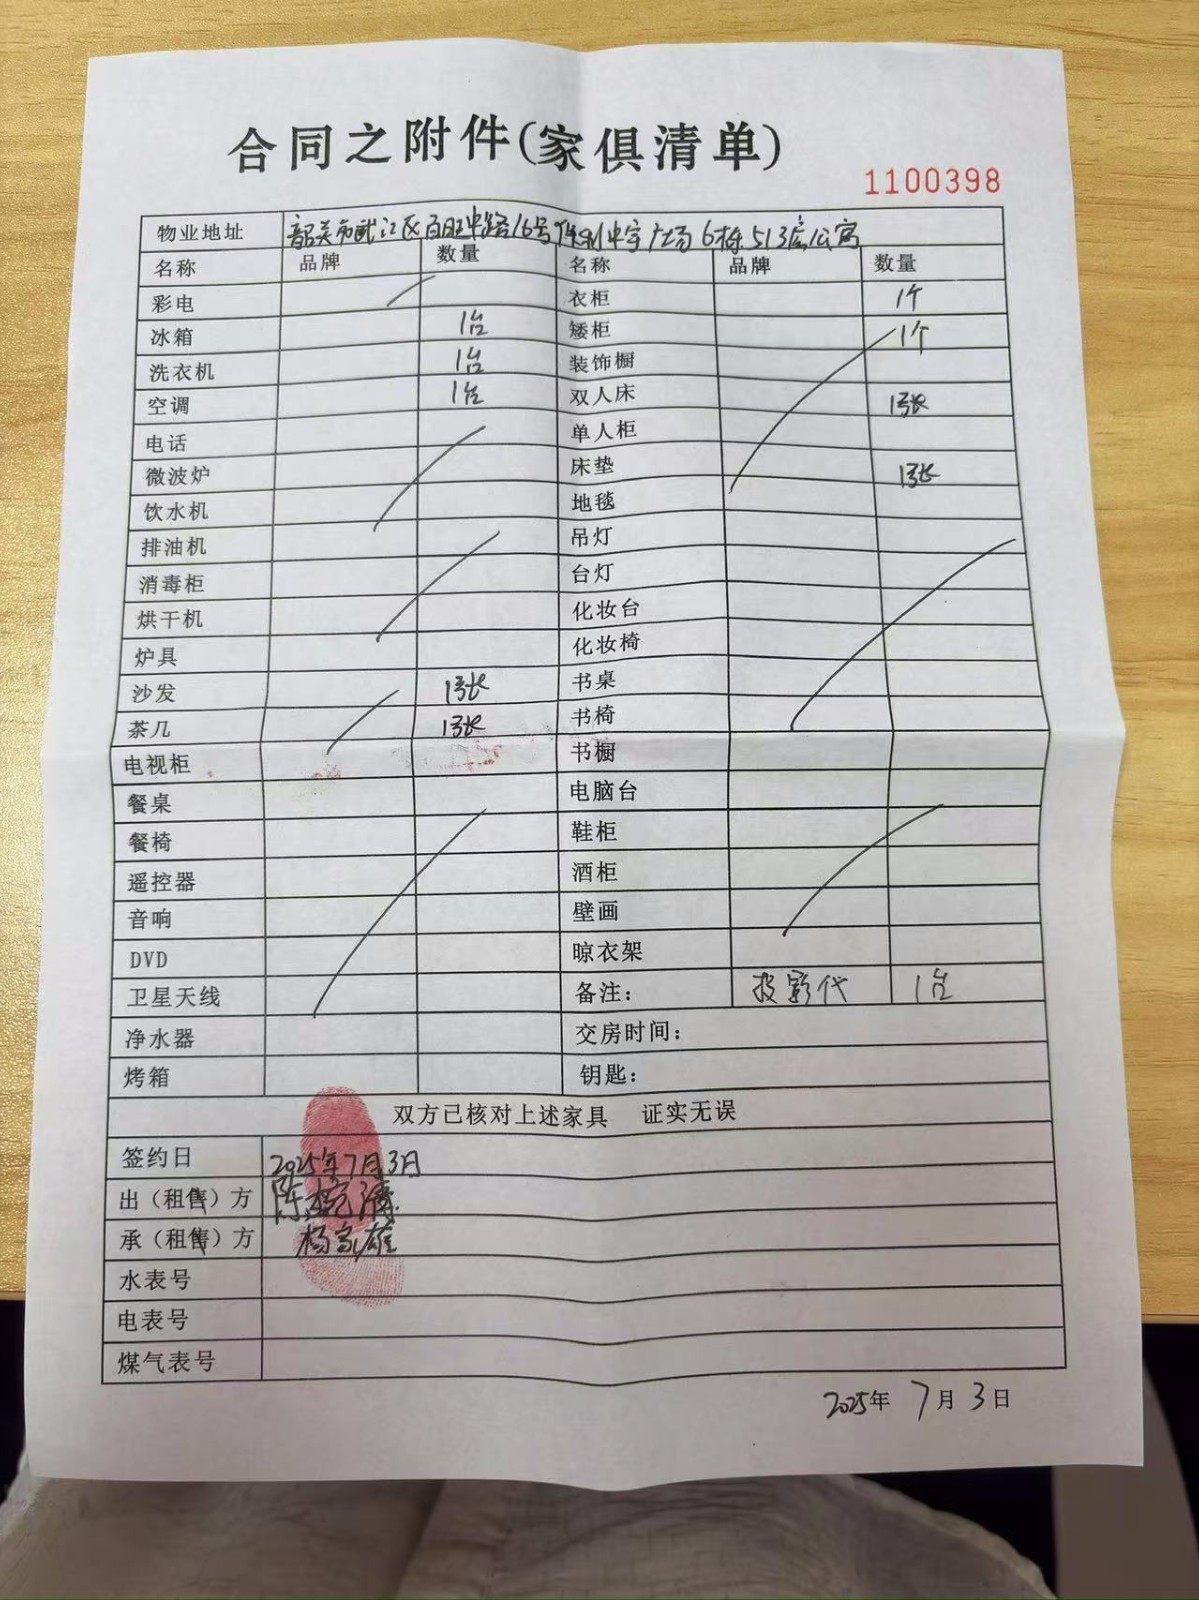 合同之附件(家俱清单)
1100398
物业地址 韶关市武江区百旺中路16号保利中宇广场6栋513房公寓
名称 品牌 数量 名称 品牌 数量
彩电 衣柜 1个
冰箱 1台 矮柜 1个
洗衣机 1台 装饰橱
空调 1台 双人床 1张
电话 单人柜
微波炉 床垫 1张
饮水机 地毯
排油机 吊灯
消毒柜 台灯
烘干机 化妆台
炉具 化妆椅
沙发 1张 书桌
茶几 1张 书椅
电视柜 书橱
餐桌 电脑台
餐椅 鞋柜
遥控器 酒柜
音响 壁画
DVD 晾衣架
卫星天线 备注: 投影代 1台
净水器 交房时间:
烤箱 钥匙:
双方已核对上述家具 证实无误
签约日 2025年7月3日
出(租售)方
承(租售)方 杨家雄
水表号
电表号
煤气表号
2025年 7月 3日